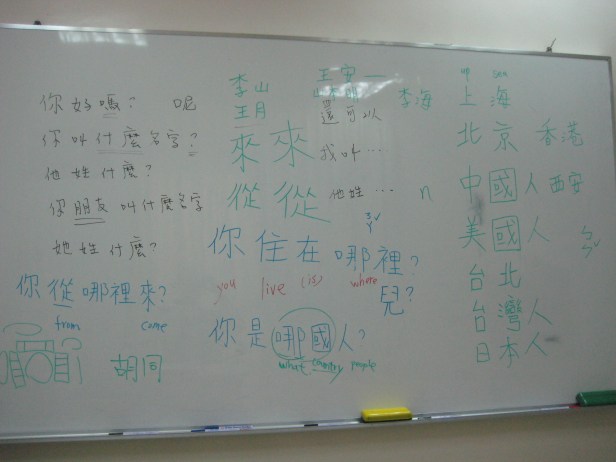 你好嗎? 呢
你叫什麼名字?
他姓什麼?
你朋友叫什麼名字
她姓什麼?
你從哪裡來?
from come
胡同
李山 王安一
王月 還可以 李海
來來 我叫…
從從 他姓… n
你住在哪裡?
you live (is) where
兒?
你是哪國人?
what country people
up sea
上海
北京 香港
中國人 西安
美國人
台北
台灣人
日本人